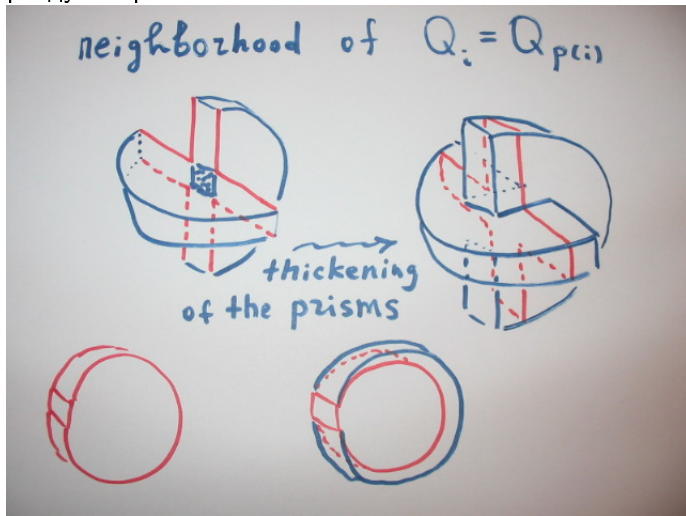 neighborhood of Q_i = Q_p(i)
thickening
of the prisms